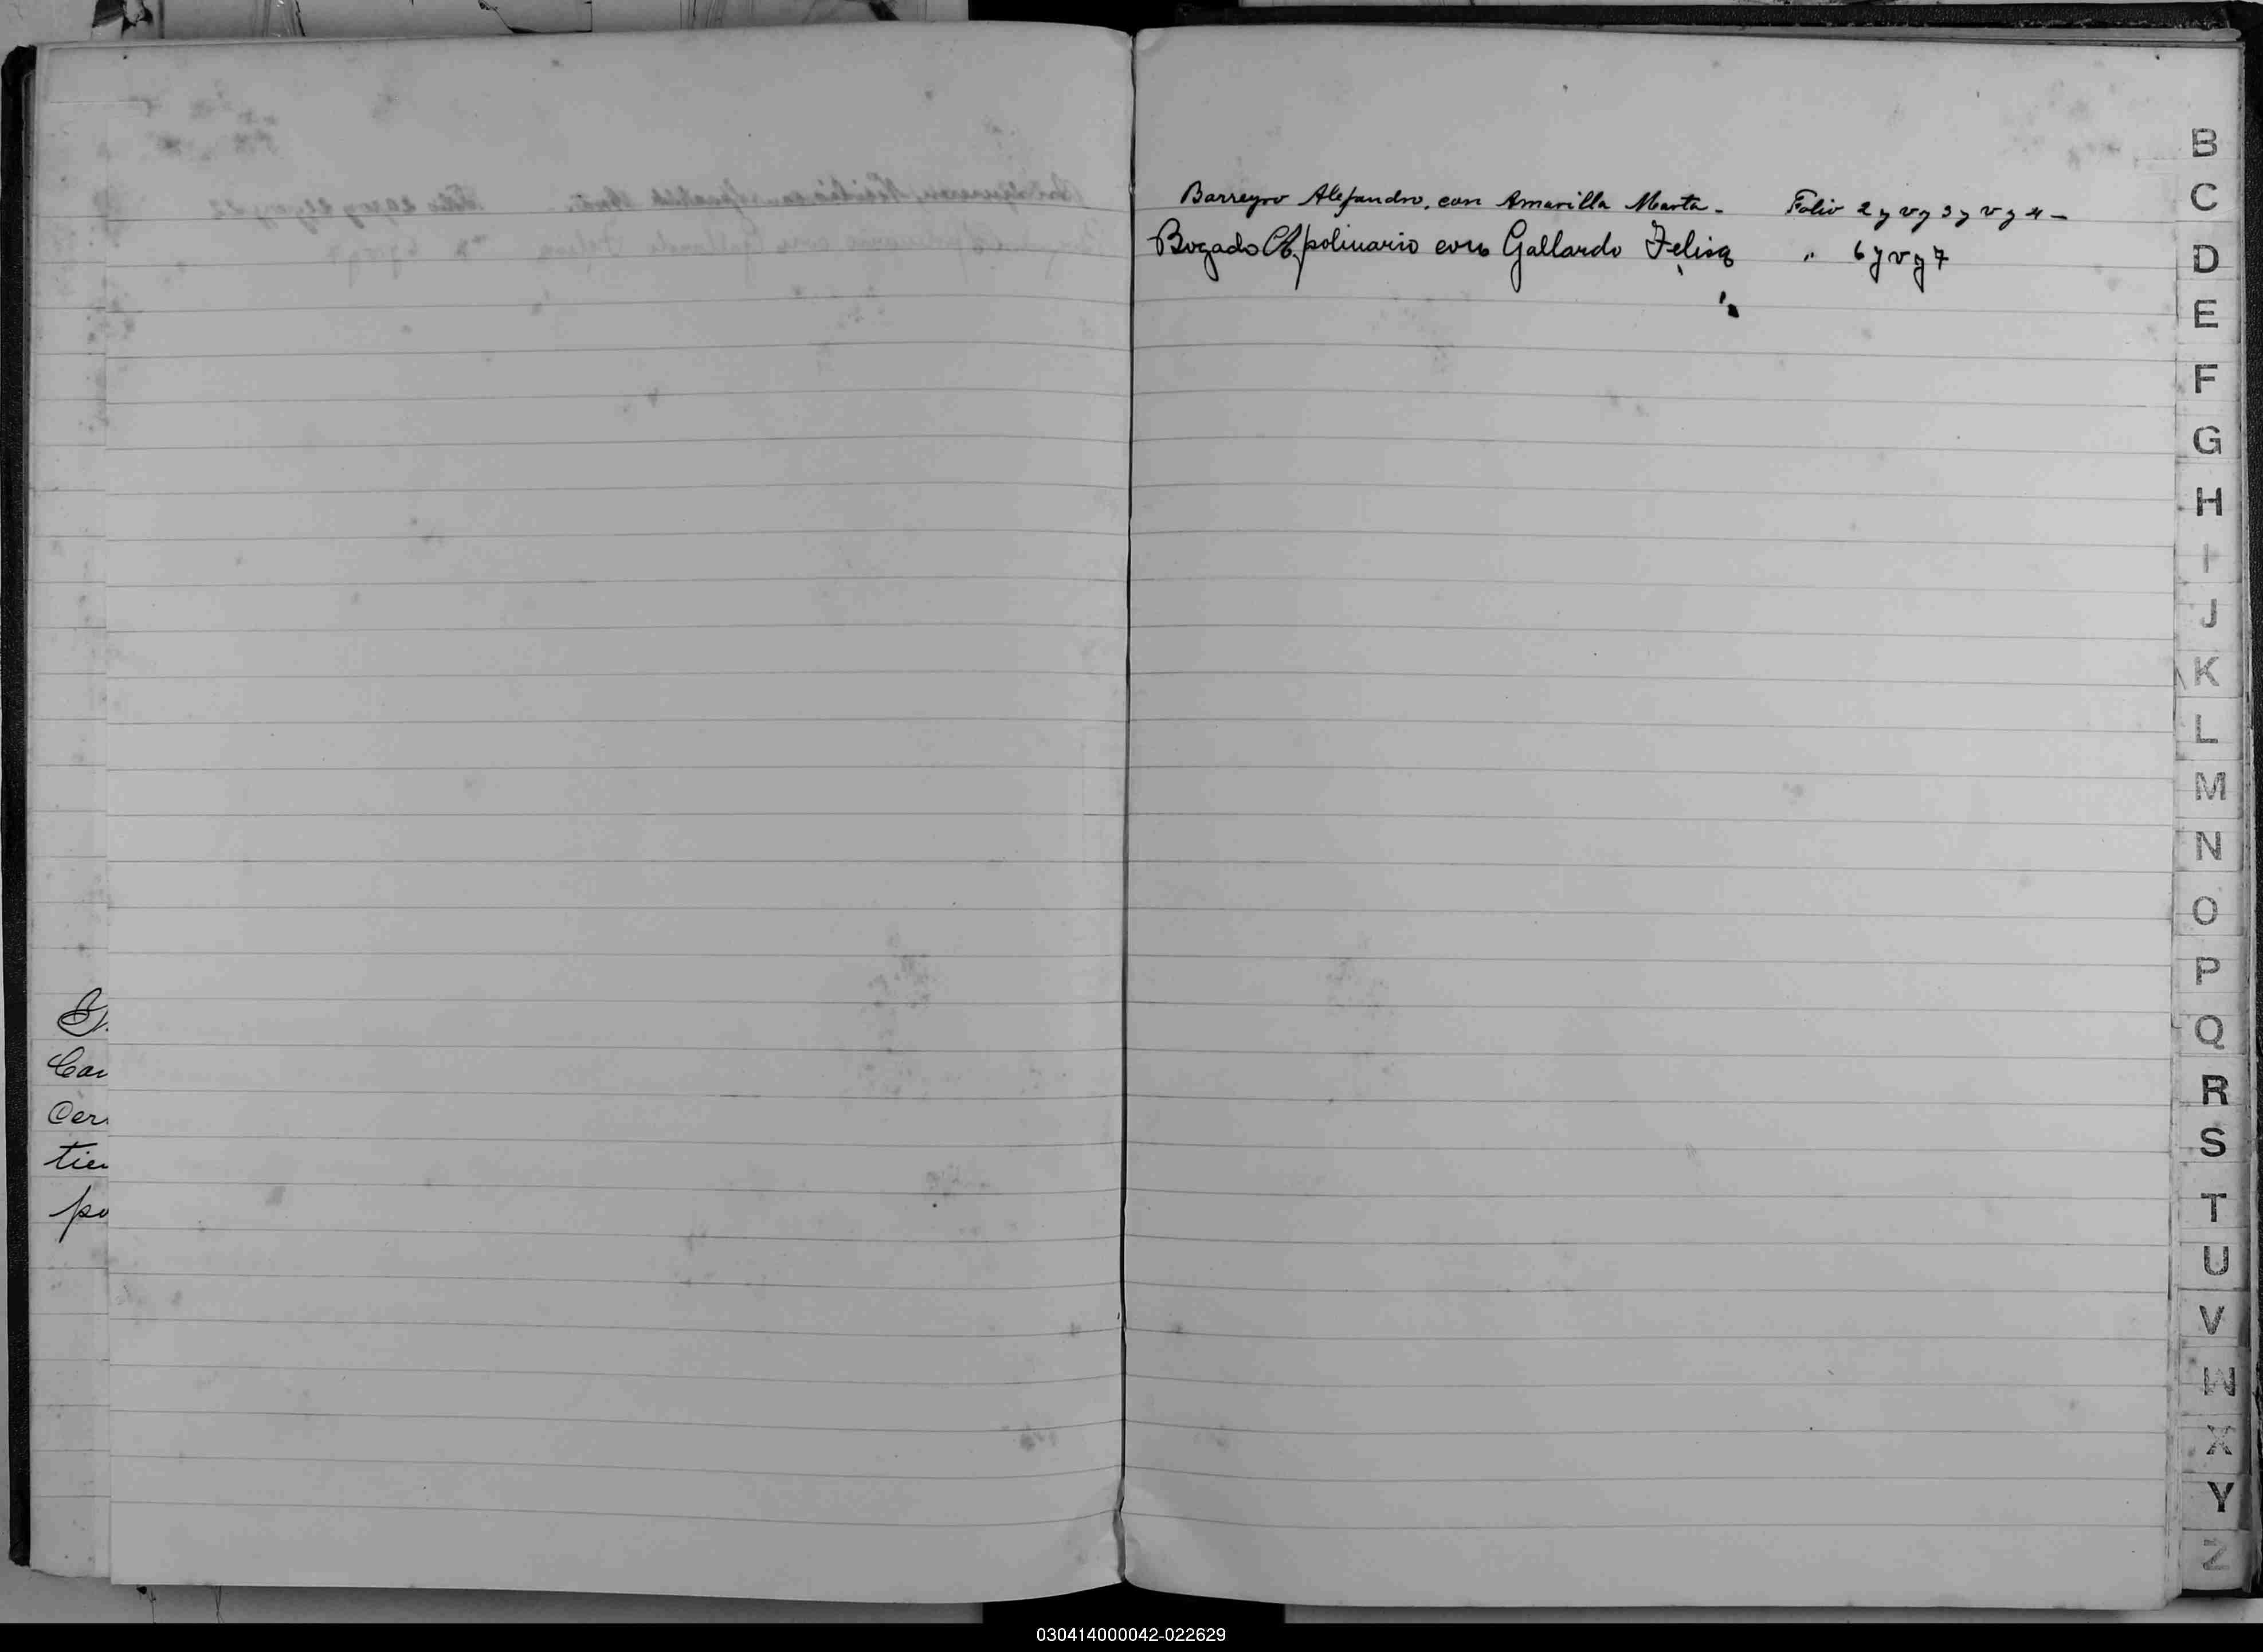 Barreyro Alejandro, con Amarilla Marta - Folio 2 y v y 3 y v y 4 -
Bogado Apolinario con Gallardo Felisa " 6 y v y 7
B
C
D
E
F
G
H
I
J
K
L
M
N
O
P
Q
R
S
T
U
V
W
X
Y
Z
Car
Cer
tien
po
030414000042-022629